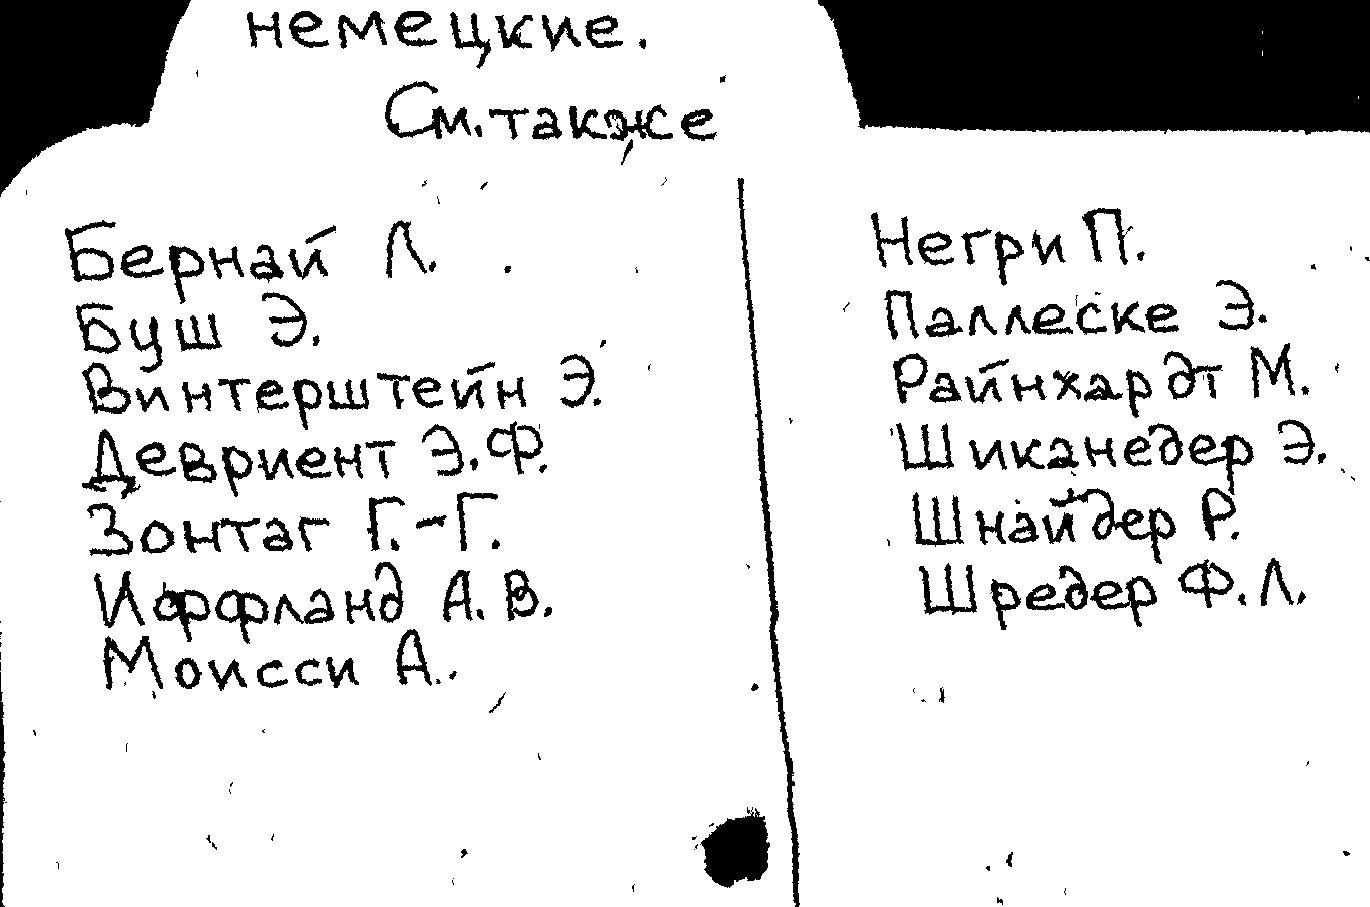 немецкие.
См. также
Бернай Л.
Буш Э.
Винтерштейн Э.
Девриент Э.Ф.
Зонтаг Г.-Г.
Иффланд А.В.
Моисси А.
Негри П.
Паллеске Э.
Райнхардт М.
Шиканедер Э.
Шнайдер Р.
Шредер Ф.Л.